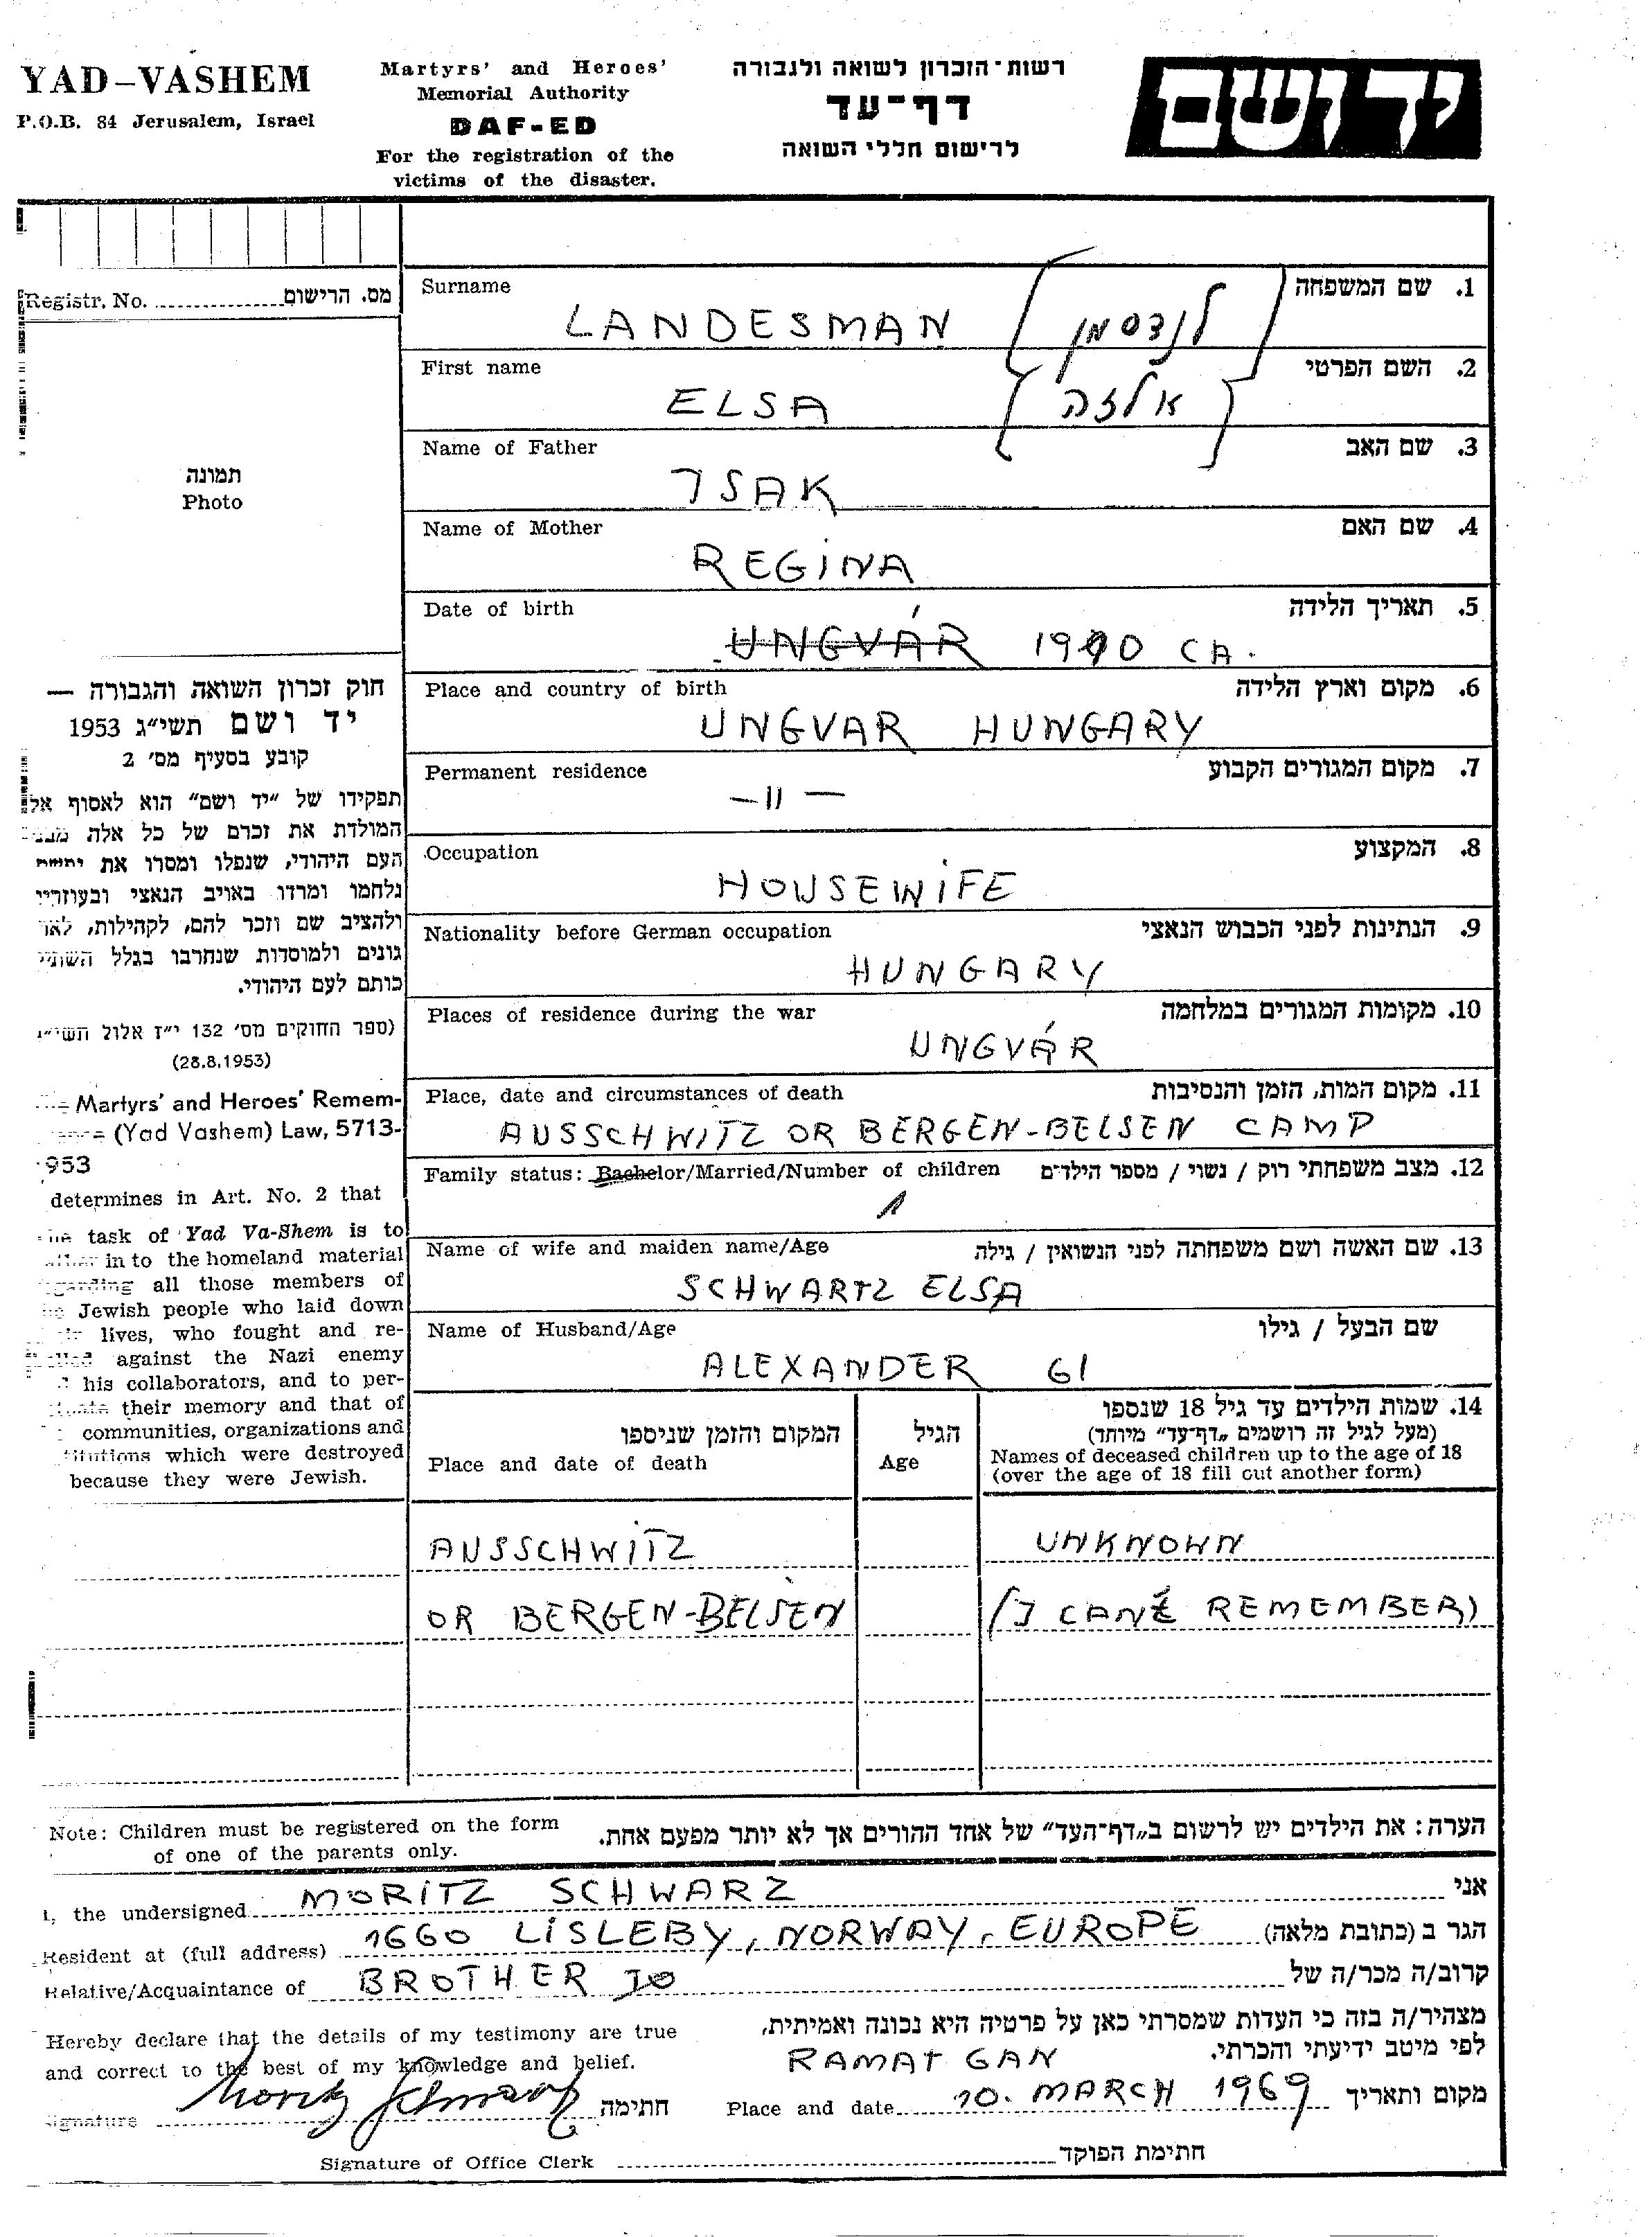 YAD-VASHEM
P.O.B. 84 Jerusalem, Israel
Martyrs' and Heroes'
Memorial Authority
DAF-ED
For the registration of the
victims of the disaster.
רשות-הזכרון לשואה ולגבורה
דף-עד
לרישום חללי השואה
יד ושם
Registr. No. מס. הרישום
תמונה
Photo
Surname 1. שם המשפחה
LANDESMAN לנדסמן
First name 2. השם הפרטי
ELSA אלזה
Name of Father 3. שם האב
ISAK
Name of Mother 4. שם האם
REGINA
Date of birth 5. תאריך הלידה
UNGVÁR 1910 CA.
Place and country of birth 6. מקום וארץ הלידה
UNGVAR HUNGARY
Permanent residence 7. מקום המגורים הקבוע
— 11 —
Occupation 8. המקצוע
HOUSEWIFE
Nationality before German occupation 9. הנתינות לפני הכבוש הנאצי
HUNGARY
Places of residence during the war 10. מקומות המגורים במלחמה
UNGVÁR
Place, date and circumstances of death 11. מקום המות, הזמן והנסיבות
AUSSCHWITZ OR BERGEN-BELSEN CAMP
Family status: Bachelor/Married/Number of children 12. מצב משפחתי רוק / נשוי / מספר הילדים
1
Name of wife and maiden name/Age 13. שם האשה ושם משפחתה לפני הנשואין / גילה
SCHWARTZ ELSA
Name of Husband/Age שם הבעל / גילו
ALEXANDER 61
14. שמות הילדים עד גיל 18 שנספו
(מעל לגיל זה רושמים „דף-עד" מיוחד)
Names of deceased children up to the age of 18
(over the age of 18 fill out another form)
הגיל
Age
המקום והזמן שניספו
Place and date of death
AUSSCHWITZ UNKNOWN
OR BERGEN-BELSEN (I CAN'T REMEMBER)
חוק זכרון השואה והגבורה —
יד ושם תשי"ג 1953
קובע בסעיף מס' 2
תפקידו של "יד ושם" הוא לאסוף אל
המולדת את זכרם של כל אלה
העם היהודי, שנפלו ומסרו את
נלחמו ומרדו באויב הנאצי ובעוזריו
ולהציב שם וזכר להם, לקהילות,
גונים ולמוסדות שנחרבו בגלל
כותם לעם היהודי.
(ספר החוקים מס' 132 י"ז אלול
(28.8.1953)
Martyrs' and Heroes' Remem-
(Yad Vashem) Law, 5713-
953
determines in Art. No. 2 that
task of Yad Va-Shem is to
in to the homeland material
all those members of
Jewish people who laid down
lives, who fought and re-
against the Nazi enemy
his collaborators, and to per-
their memory and that of
communities, organizations and
which were destroyed
because they were Jewish.
Note: Children must be registered on the form
of one of the parents only.
הערה: את הילדים יש לרשום ב„דף-העד" של אחד ההורים אך לא יותר מפעם אחת.
I, the undersigned MORITZ SCHWARZ אני
Resident at (full address) 1660 LISLEBY, NORWAY, EUROPE הגר ב (כתובת מלאה)
Relative/Acquaintance of BROTHER TO קרוב/ה מכר/ה של
Hereby declare that the details of my testimony are true
and correct to the best of my knowledge and belief.
מצהיר/ה בזה כי העדות שמסרתי כאן על פרטיה היא נכונה ואמיתית,
לפי מיטב ידיעתי והכרתי.
RAMAT GAN
Signature Moritz Schwarz חתימה
Place and date 10. MARCH 1969 מקום ותאריך
Signature of Office Clerk חתימת הפוקד